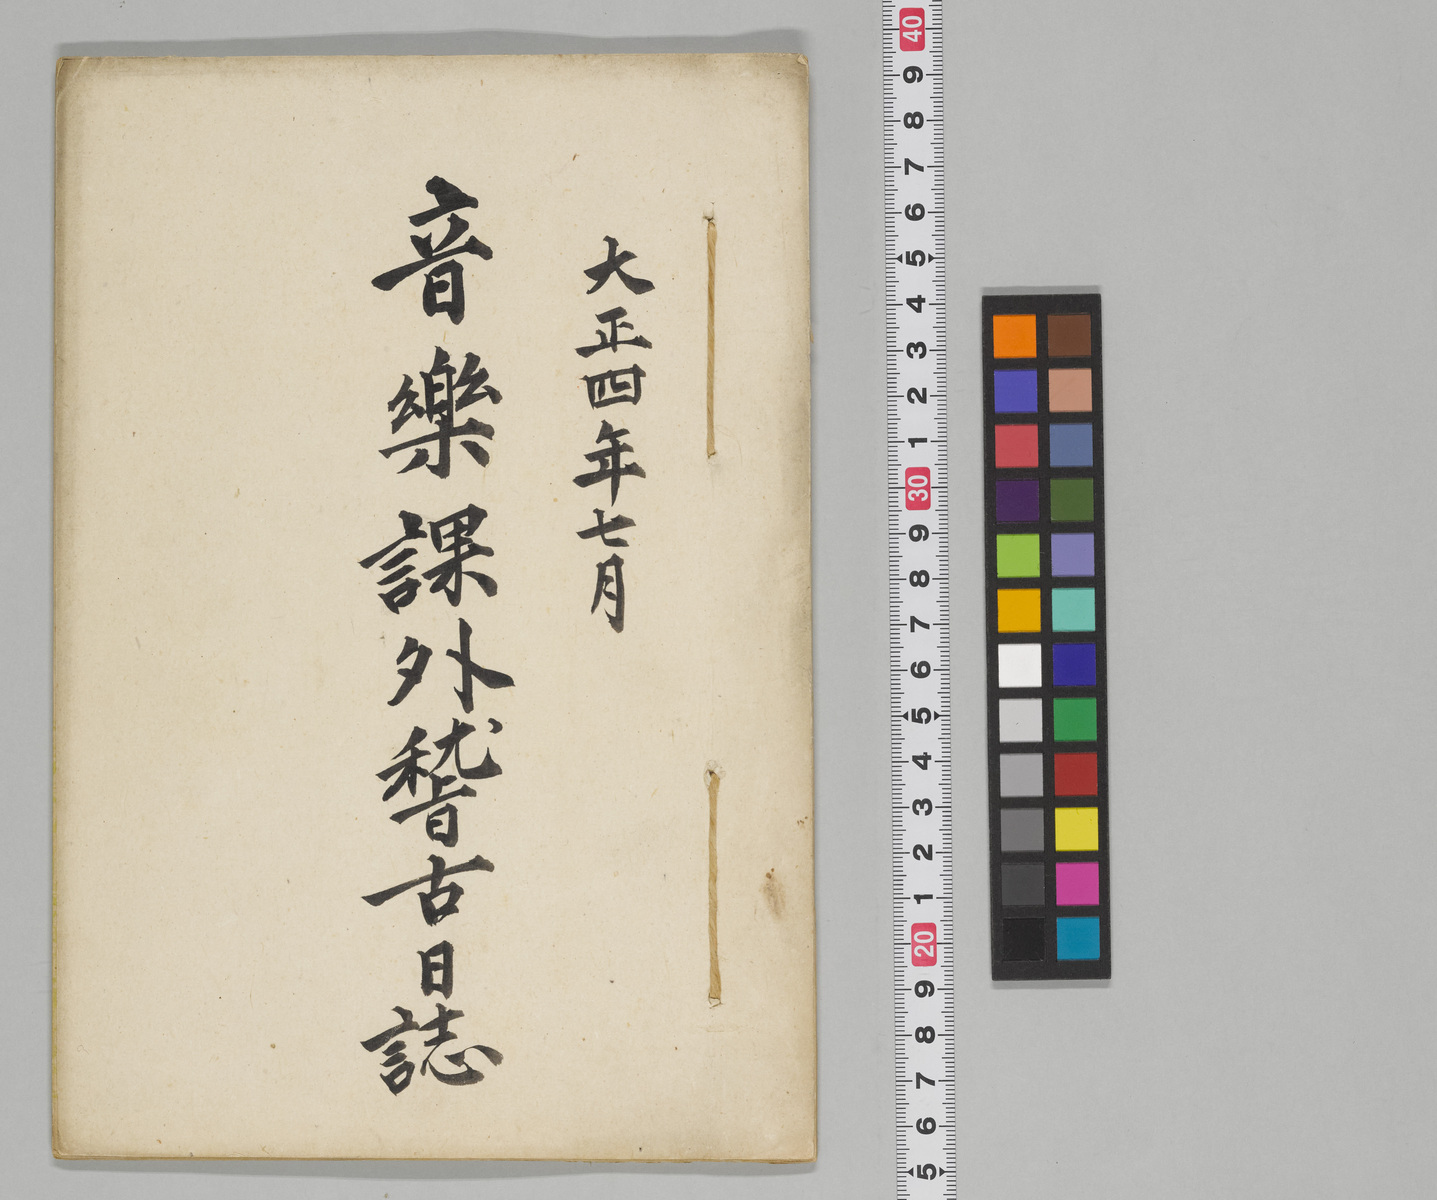 大正四年七月
音樂課外稽古日誌
40
9
8
7
6
5
4
3
2
1
30
9
8
7
6
5
4
3
2
1
20
9
8
7
6
5